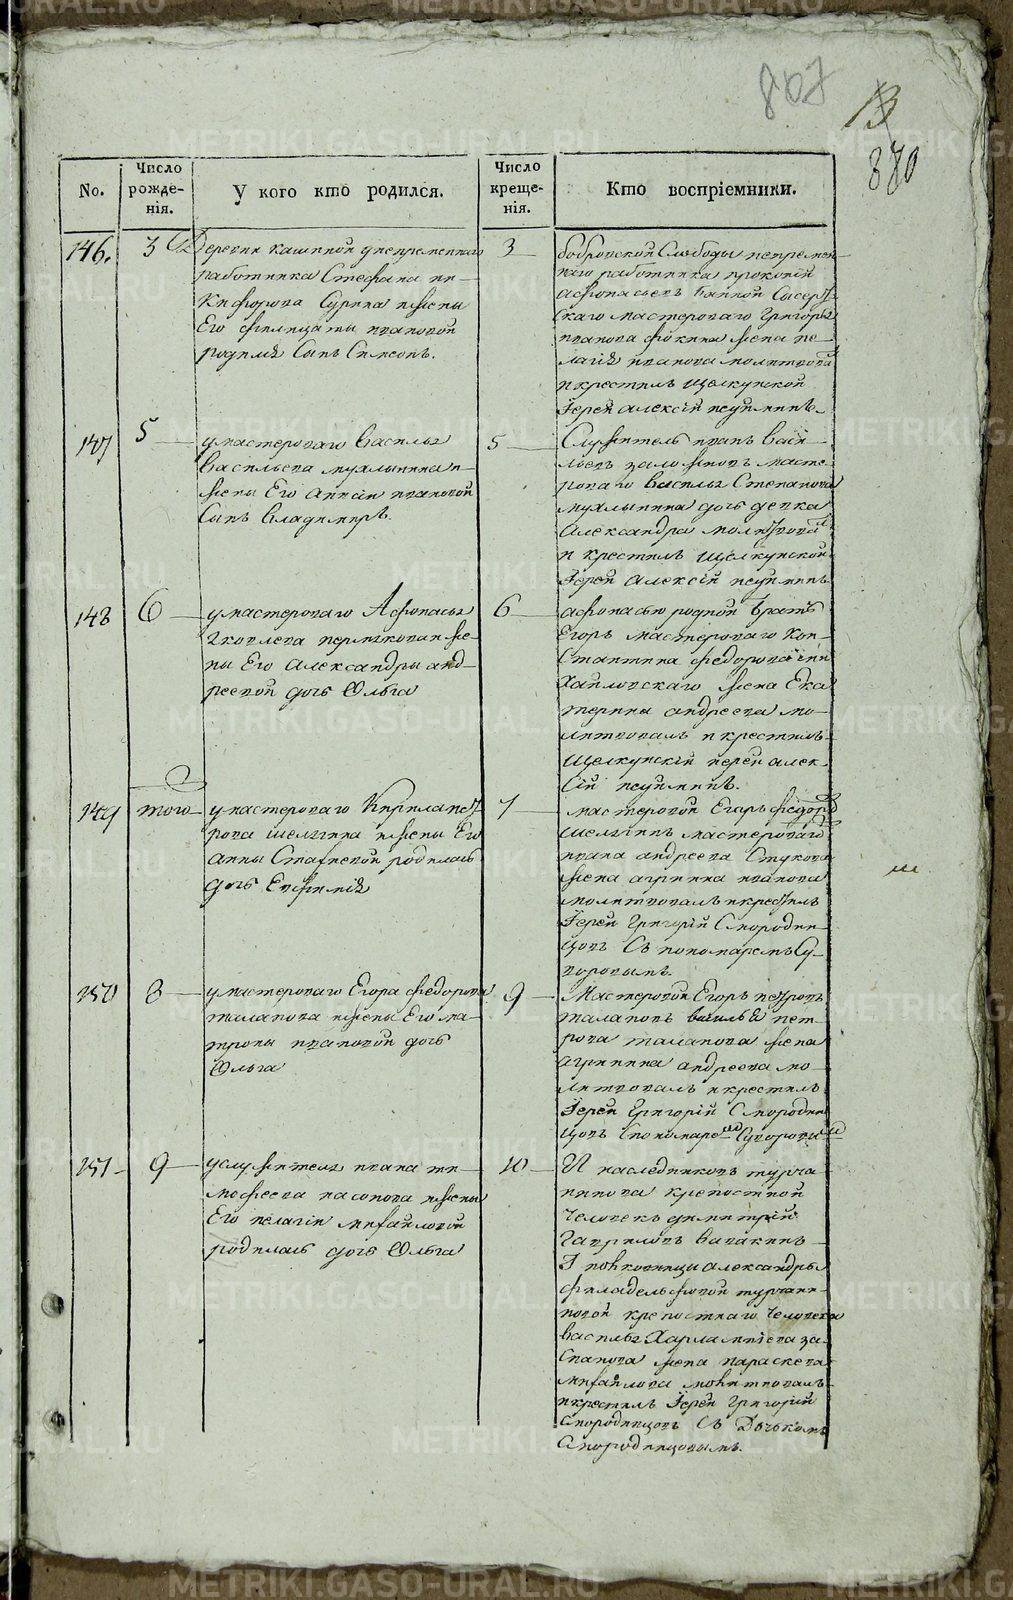 807
13
880
No.
Число рожде-нія.
У кого кто родился.
Число креще-нія.
Кто воспріемники.
146.
3
Деревни кашиной унепременнаго
работника Стефана ни-
кифорова Сурина ижены
Его филицаты ивановой
родился Сынъ Симеонъ.
3
бобровской Слободы непремен
наго работника прокопій
Афонасьевъ Сысерт-
скаго мастероваго Григорья
иванова фокина жена пе-
лагія иванова молитвовал
и крестилъ щелкунской
Іерей алексій
147
5
умастероваго Василья
Васильева мухлынина и
жены Его аннси ивановой
Сынъ Владимиръ.
5
Служитель иванъ Васи-
льевъ масте-
роваго Василья Степанова
мухлынина дочь девка
Александра молитвовал
и крестилъ щелкунской
Іерей Алексій
148
6
умастероваго Афонасья
Яковлева же-
ны Его Александры анд-
реевой дочь Ольга
6
афонасью родной братъ
Егоръ мастероваго Кон-
стантина федорова
жена Ека
терина андреева мо-
литвовалъ и крестилъ
щелкунскій іерей алек-
сій
149
того
умастероваго Кирила пет
рова шелгина ижены Его
анны родилась
дочь Евфимія
7
мастеровой Егоръ федоров
шелгинъ мастероваго
ивана андреева Стукова
жена агрипина иванова
молитвовалъ икрестилъ
Іерей Григорій Смородин
цовъ Съ пономаремъ Су-
воровымъ.
150
8
умастероваго Егора федорова
таланова ижены Его ма-
троны ивановой дочь
Ольга
9
Мастеровой Егоръ петровъ
талановъ василья пет-
рова таланова жена
агрипина андреева мо-
литвовалъ икрестилъ
Іерей Григорій Смородин
цовъ Спономаремъ Суворовым
151
9
услужителя ивана ти-
мофеева насонова ижены
Его пелагіи михайловой
родилась дочь Ольга
10
И наследниковъ турча-
нинова крепостной
человекъ димитрій
Гавриловъ
александры
филадельфовой турчани-
новой крепостнаго человека
Василья Харлампіева
жена параскева
михайлова молитвовалъ
икрестилъ Іерей Григорій
Смородинцовъ Съ Дьячкомъ
Смородинцовымъ.
METRIKI.GASO-URAL.RU